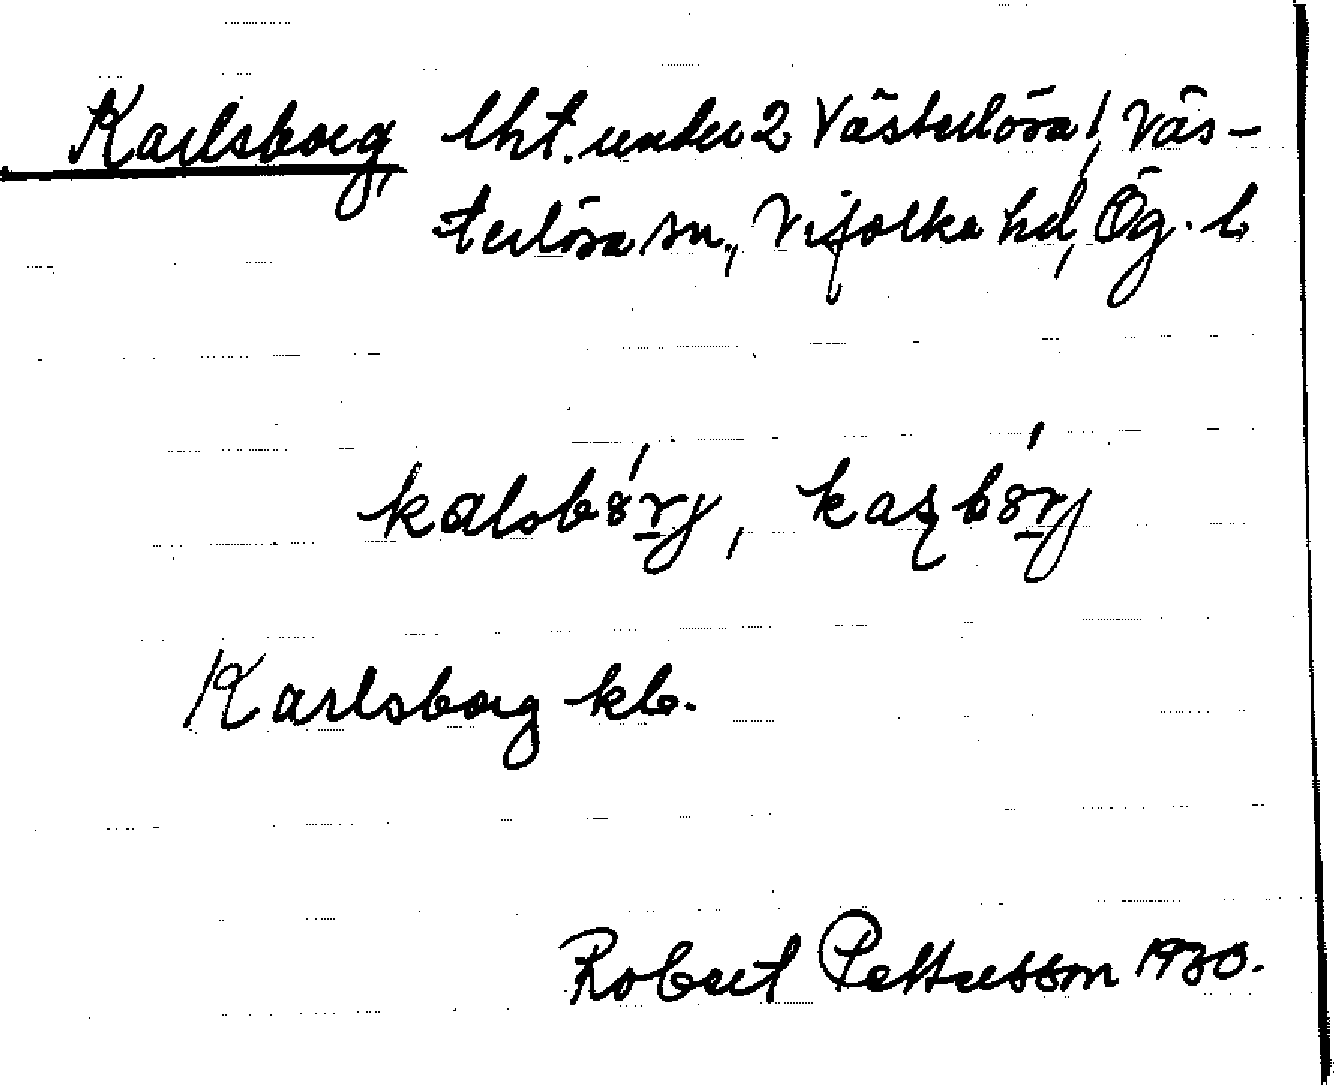 Karlsborg, lht. under 2 Västerlösa, Väs-
terlösa sn., Vifolka hd, Ög. l.
kalsbǿrj, kaʂbǿrj
Karlsborg kb.
Robert Pettersson 1930.